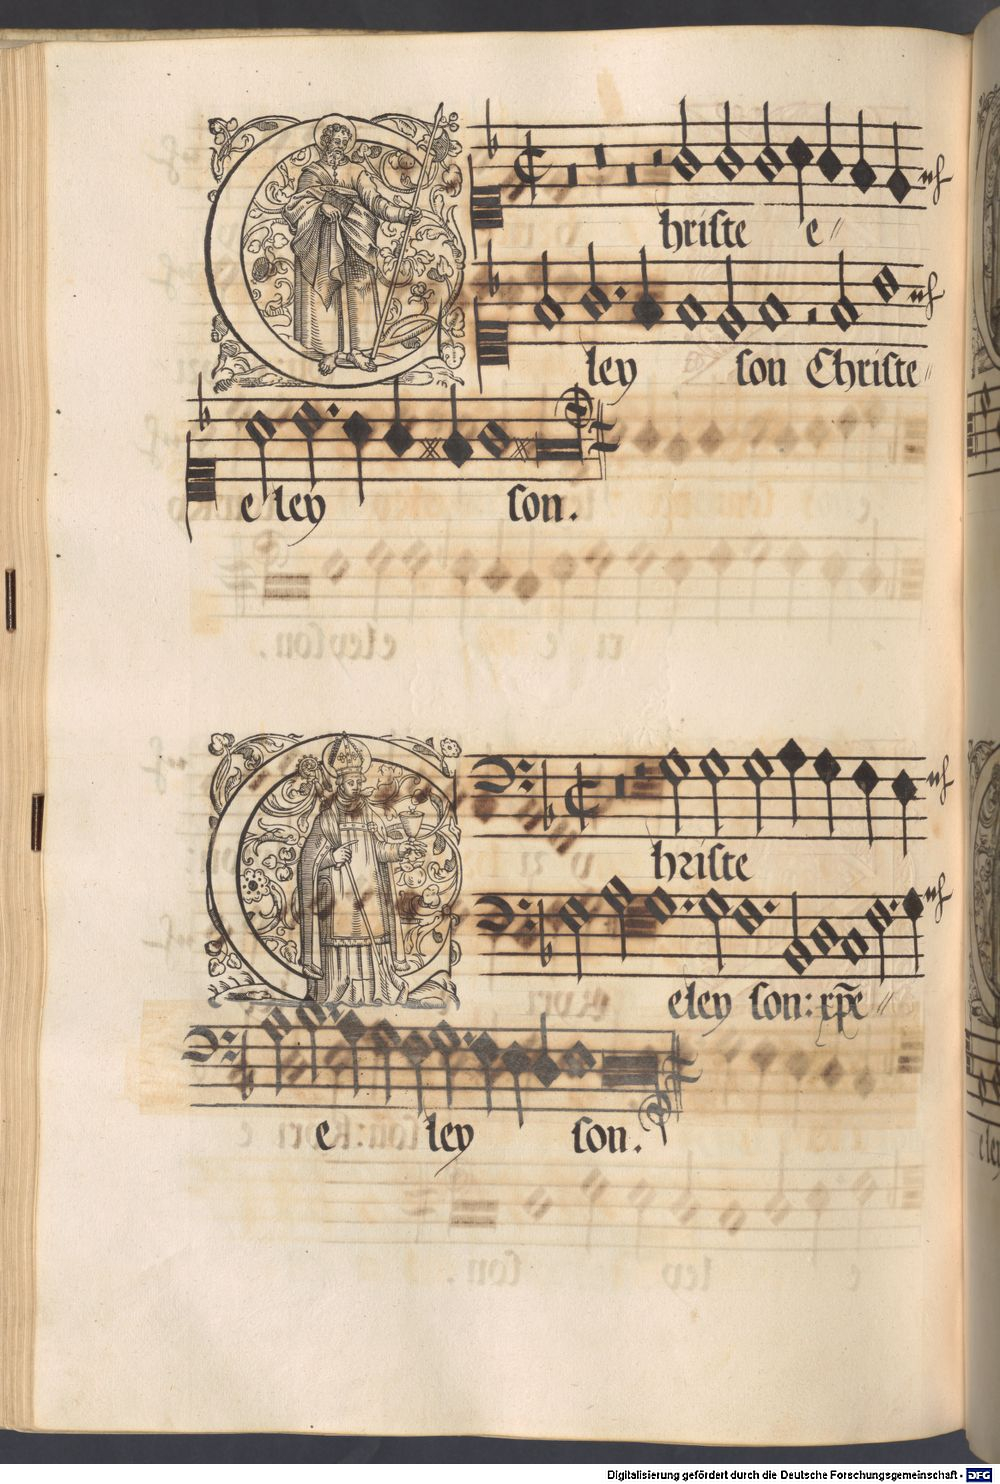 Christe e
ley son Christe
e ley son.
Christe
eley son: xp̄e
e ley son.
Digitalisierung gefördert durch die Deutsche Forschungsgemeinschaft - DFG